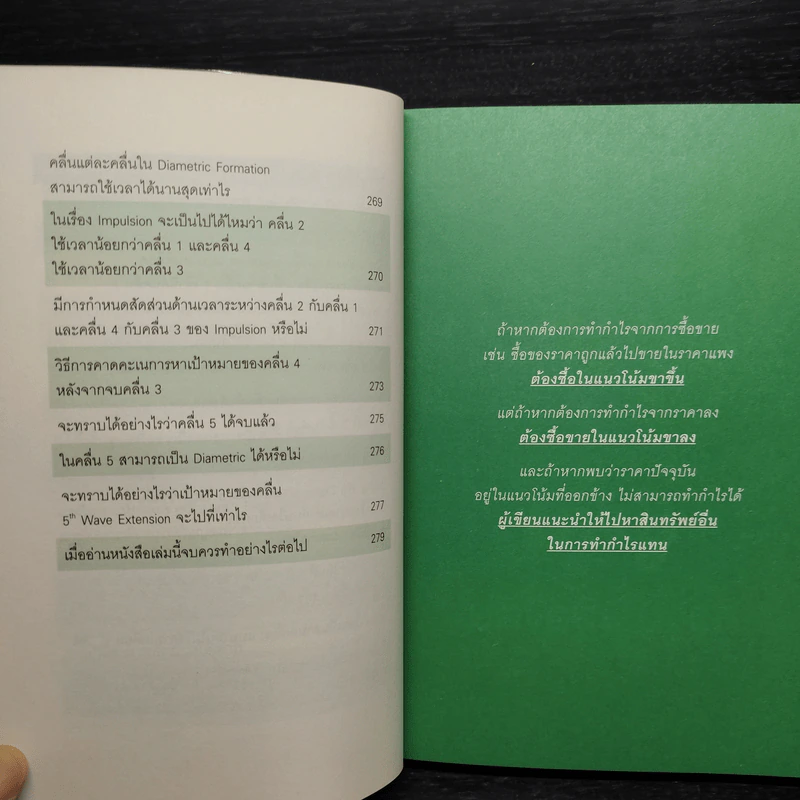 คลื่นแต่ละคลื่นใน Diametric Formation
สามารถใช้เวลาได้นานสุดเท่าไร 269
ในเรื่อง Impulsion จะเป็นไปได้ไหมว่า คลื่น 2
ใช้เวลาน้อยกว่าคลื่น 1 และคลื่น 4
ใช้เวลาน้อยกว่าคลื่น 3 270
มีการกำหนดสัดส่วนด้านเวลาระหว่างคลื่น 2 กับคลื่น 1
และคลื่น 4 กับคลื่น 3 ของ Impulsion หรือไม่ 271
วิธีการคาดคะเนการหาเป้าหมายของคลื่น 4
หลังจากจบคลื่น 3 273
จะทราบได้อย่างไรว่าคลื่น 5 ได้จบแล้ว 275
ในคลื่น 5 สามารถเป็น Diametric ได้หรือไม่ 276
จะทราบได้อย่างไรว่าเป้าหมายของคลื่น
5th Wave Extension จะไปที่เท่าไร 277
เมื่ออ่านหนังสือเล่มนี้จบควรทำอย่างไรต่อไป 279
ถ้าหากต้องการทำกำไรจากการซื้อขาย
เช่น ซื้อของราคาถูกแล้วไปขายในราคาแพง
ต้องซื้อในแนวโน้มขาขึ้น
แต่ถ้าหากต้องการทำกำไรจากราคาลง
ต้องซื้อขายในแนวโน้มขาลง
และถ้าหากพบว่าราคาปัจจุบัน
อยู่ในแนวโน้มที่ออกข้าง ไม่สามารถทำกำไรได้
ผู้เขียนแนะนำให้ไปหาสินทรัพย์อื่น
ในการทำกำไรแทน